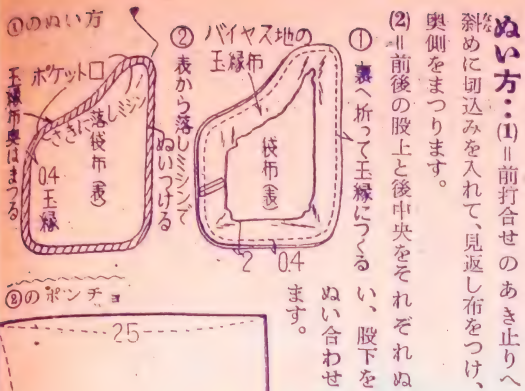 ぬい方‥(1)=前打合せのあき止りへ
斜めに切込みを入れて、見返し布をつけ、
奥側をまつります。
(2)=前後の股上と後中央をそれぞれぬ
い、股下を
ぬい合わせ
ます。
①裏へ折って玉縁につくる
バイヤス地の
玉縁布
袋布(表)
2
0.4
②表から落しミシンで
ぬいつける
①のぬい方
ポケット口
さきに落しミシン
袋布(表)
0.4
玉縁
玉縁布奥はまつる
②のポンチョ
25